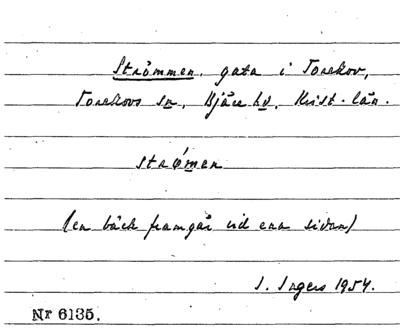 Strömmen, gata i Torekov,
Torekovs sn, Bjäre hd, Krist. län.
strǿmen
(en bäck framgår vid ena sidan)
I. Ingers 1954.
Nr 6135.